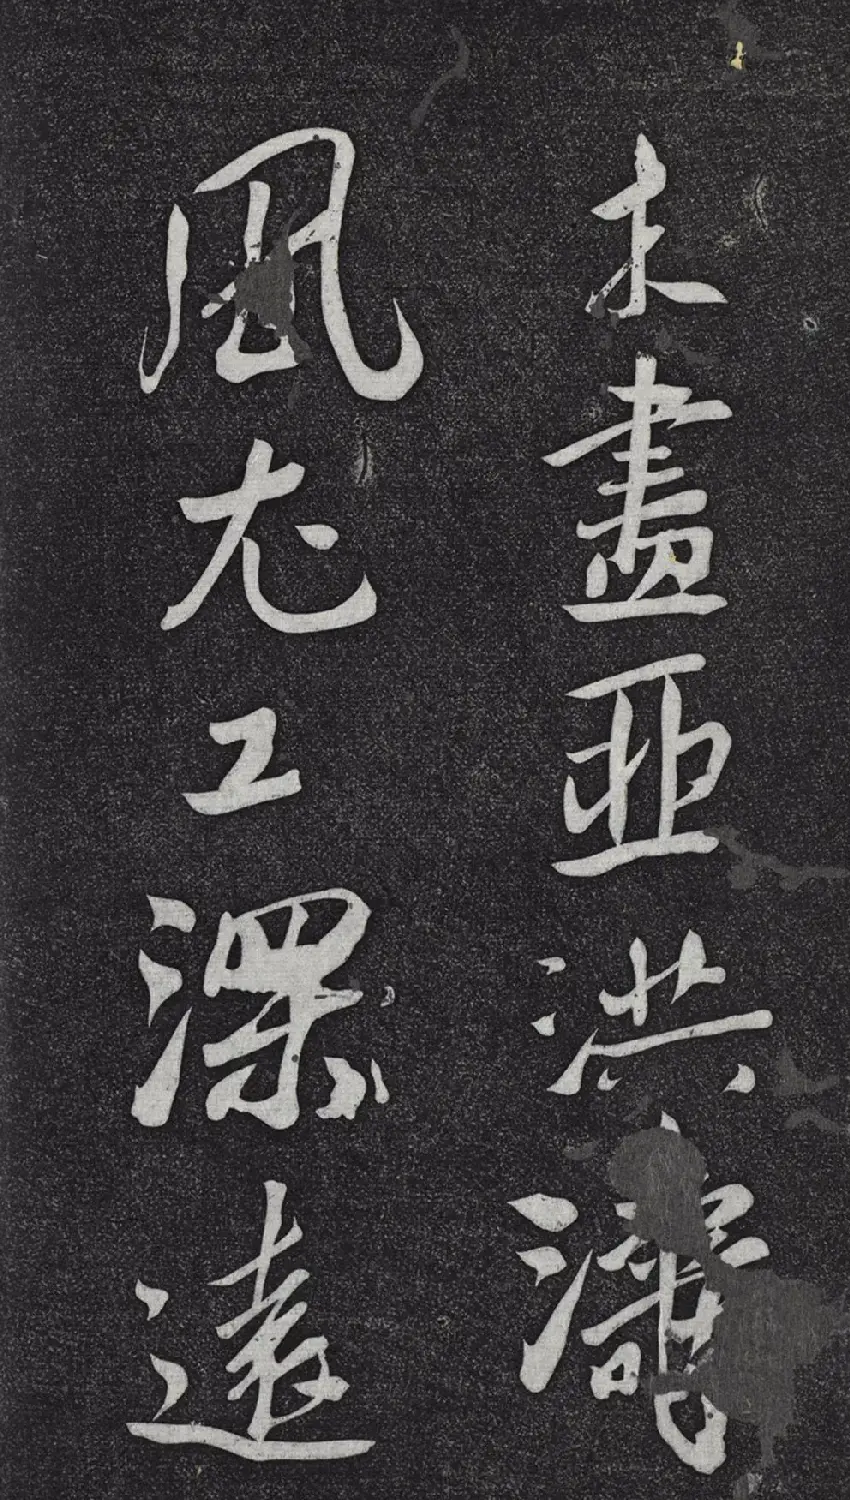 木盡亞洪濤
風尤工深遠